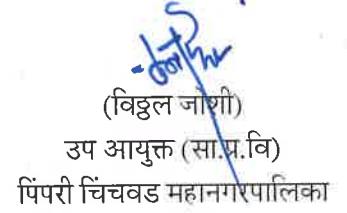 (विठ्ठल जोशी)
उप आयुक्त (सा.प्र.वि)
पिंपरी चिंचवड महानगरपालिका